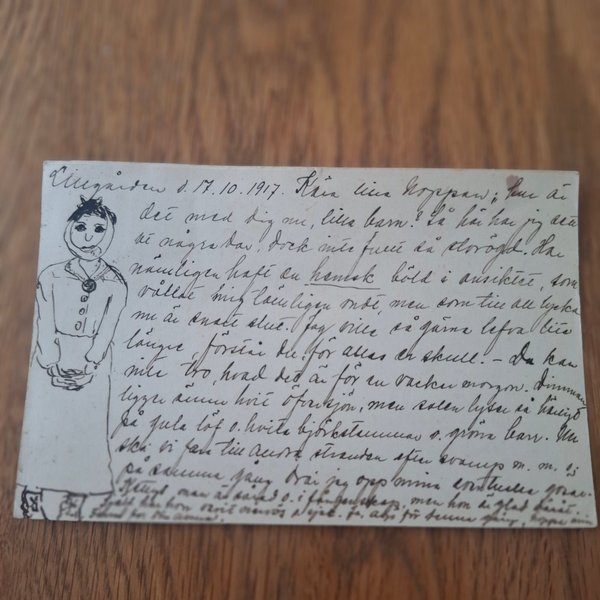 Lillgården d. 17.10.1917. Kära lilla Noppan, hur är
det med dig nu, lilla barn? Så här har jag sett
ut några dar, dock inte fullt så storögd. Har
nämligen haft en hemsk böld i ansiktet, som
vållat mig tämligen ondt, men som till all lycka
nu är snart slut. Jag ville så gärna lefva lite
länge, förstår du, för allas er skull. – Du kan
inte tro, hvad det är för en vacker morgon. Dimman
ligger ännu hvit öfver sjön, men solen lyser så härligt
på gula löf o. hvita björkstammar o. gröna barr. Nu
ska vi fara till andra stranden efter svamp m. m. o
på samma gång drar jag opp mina
man är sårad o. i men hon är glad
för denna gång,